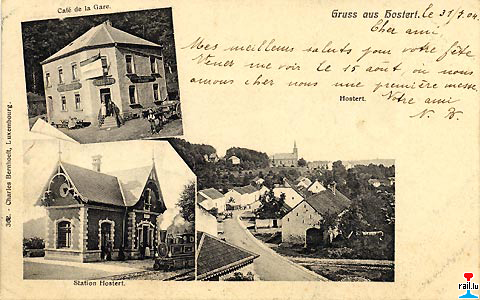 Café de la Gare.
Gruss aus Hostert.
le 31/7.04
Cher ami,
Mes meilleurs saluts pour votre fête
Venez me voir le 15 août, où nous
avons chez nous une première messe.
Votre ami
N. W
Hostert.
362. - Charles Bernhoeft, Luxembourg.
Station Hostert.
rail.lu